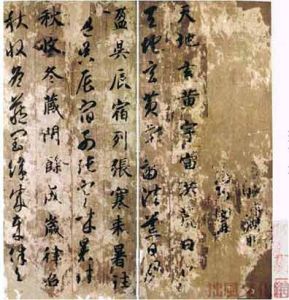 天地玄黃宇宙洪荒日月
天地玄黃宇宙洪荒日月
盈昃辰宿列張寒來暑往
盈昃辰宿列張寒來暑往
秋收冬藏閏餘成歲律呂
秋收冬藏閏餘成歲律呂